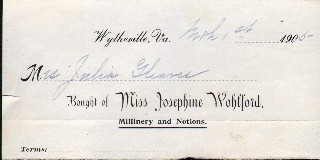 Wytheville, Va. Mch 1st 1905
Mrs Julia Gleaves
Bought of Miss Josephine Wohlford,
Millinery and Notions.
Terms: